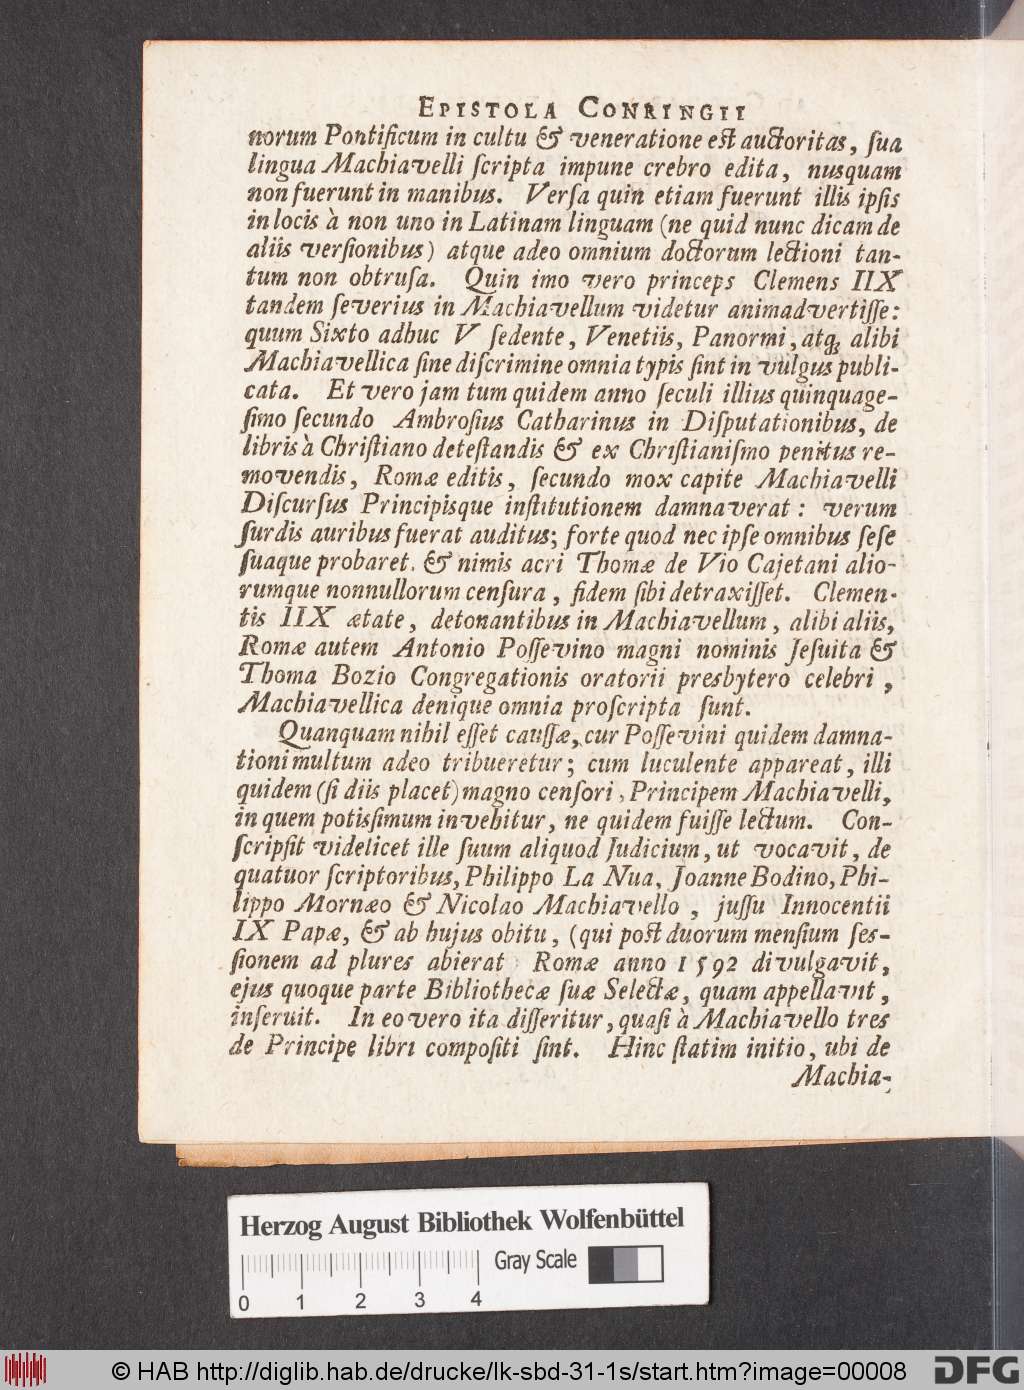 EPISTOLA CONRINGII
norum Pontificum in cultu & veneratione est auctoritas, ſua
lingua Machiavelli ſcripta impune crebro edita, nusquam
non fuerunt in manibus. Verſa quin etiam fuerunt illis ipſis
in locis à non uno in Latinam linguam (ne quid nunc dicam de
aliis verſionibus) atque adeo omnium doctorum lectioni tan-
tum non obtruſa. Quin imo vero princeps Clemens IIX
tandem ſeverius in Machiavellum videtur animadvertiſſe:
quum Sixto adhuc V ſedente, Venetiis, Panormi, atq; alibi
Machiavellica ſine diſcrimine omnia typis ſint in vulgus publi-
cata. Et vero jam tum quidem anno ſeculi illius quinquage-
ſimo ſecundo Ambroſius Catharinus in Diſputationibus, de
libris à Chriſtiano deteſtandis & ex Chriſtianiſmo penitus re-
movendis, Romæ editis, ſecundo mox capite Machiavelli
Diſcurſus Principisque inſtitutionem damnaverat: verum
ſurdis auribus fuerat auditus; forte quod nec ipſe omnibus ſeſe
ſuaque probaret, & nimis acri Thomæ de Vio Cajetani alio-
rumque nonnullorum cenſura, fidem ſibi detraxiſſet. Clemen-
tis IIX ætate, detonantibus in Machiavellum, alibi aliis,
Romæ autem Antonio Poſſevino magni nominis Jeſuita &
Thoma Bozio Congregationis oratorii presbytero celebri,
Machiavellica denique omnia proſcripta ſunt.
Quanquam nihil eſſet cauſſæ, cur Poſſevini quidem damna-
tioni multum adeo tribueretur; cum luculente appareat, illi
quidem (ſi diis placet) magno cenſori, Principem Machiavelli,
in quem potisſimum invehitur, ne quidem fuiſſe lectum. Con-
ſcripſit videlicet ille ſuum aliquod Judicium, ut vocavit, de
quatuor ſcriptoribus, Philippo La Nua, Joanne Bodino, Phi-
lippo Mornæo & Nicolao Machiavello, juſſu Innocentii
IX Papæ, & ab hujus obitu, (qui post duorum menſium ſes-
ſionem ad plures abierat Romæ anno 1592 divulgavit,
ejus quoque parte Bibliothecæ ſuæ Selectæ, quam appellavit,
inſeruit. In eo vero ita diſſeritur, quaſi à Machiavello tres
de Principe libri compoſiti ſint. Hinc ſtatim initio, ubi de
Machia-
Herzog August Bibliothek Wolfenbüttel
Gray Scale
0 1 2 3 4
© HAB http://diglib.hab.de/drucke/lk-sbd-31-1s/start.htm?image=00008
DFG